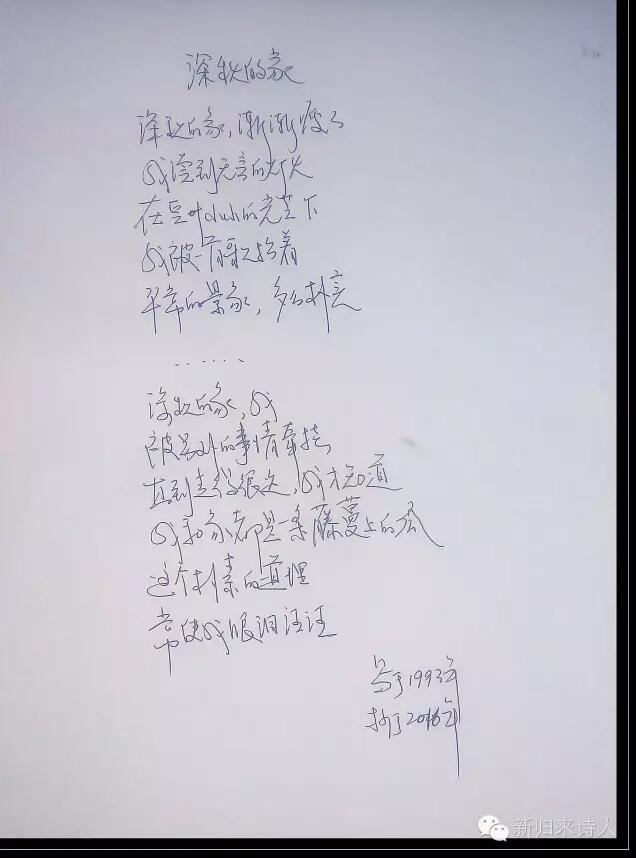 深秋的家
深秋的家,渐渐瘦了
我隐到无言的灯火
在豆叶duh的光芒下
我被一首歌
平常的景象,多么朴实
......
深秋的家,我
被另外的事情牵挂
直到走得很远,我才知道
我和家都是一条藤蔓上的瓜
这个朴素的道理
常使我眼泪汪汪
写于1993年
抄于2016年
新归来诗人